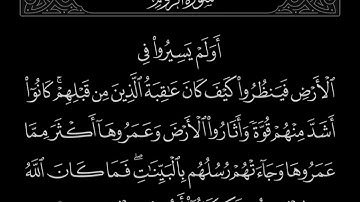 أَوَلَمْ يَسِيرُوا۟ فِى
ٱلْأَرْضِ فَيَنظُرُوا۟ كَيْفَ كَانَ عَـٰقِبَةُ ٱلَّذِينَ مِن قَبْلِهِمْ ۚ كَانُوٓا۟
أَشَدَّ مِنْهُمْ قُوَّةً وَأَثَارُوا۟ ٱلْأَرْضَ وَعَمَرُوهَآ أَكْثَرَ مِمَّا
عَمَرُوهَا وَجَآءَتْهُمْ رُسُلُهُم بِٱلْبَيِّنَـٰتِ ۖ فَمَا كَانَ ٱللَّهُ